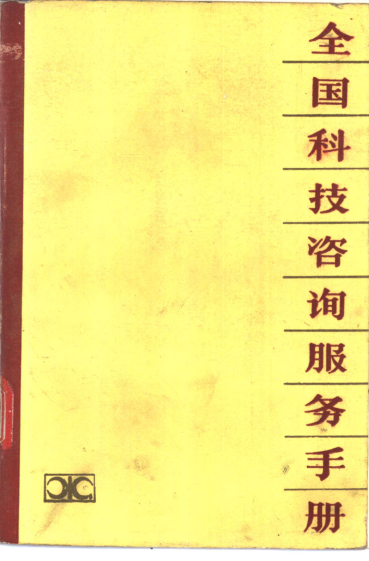 全国科技咨询服务手册